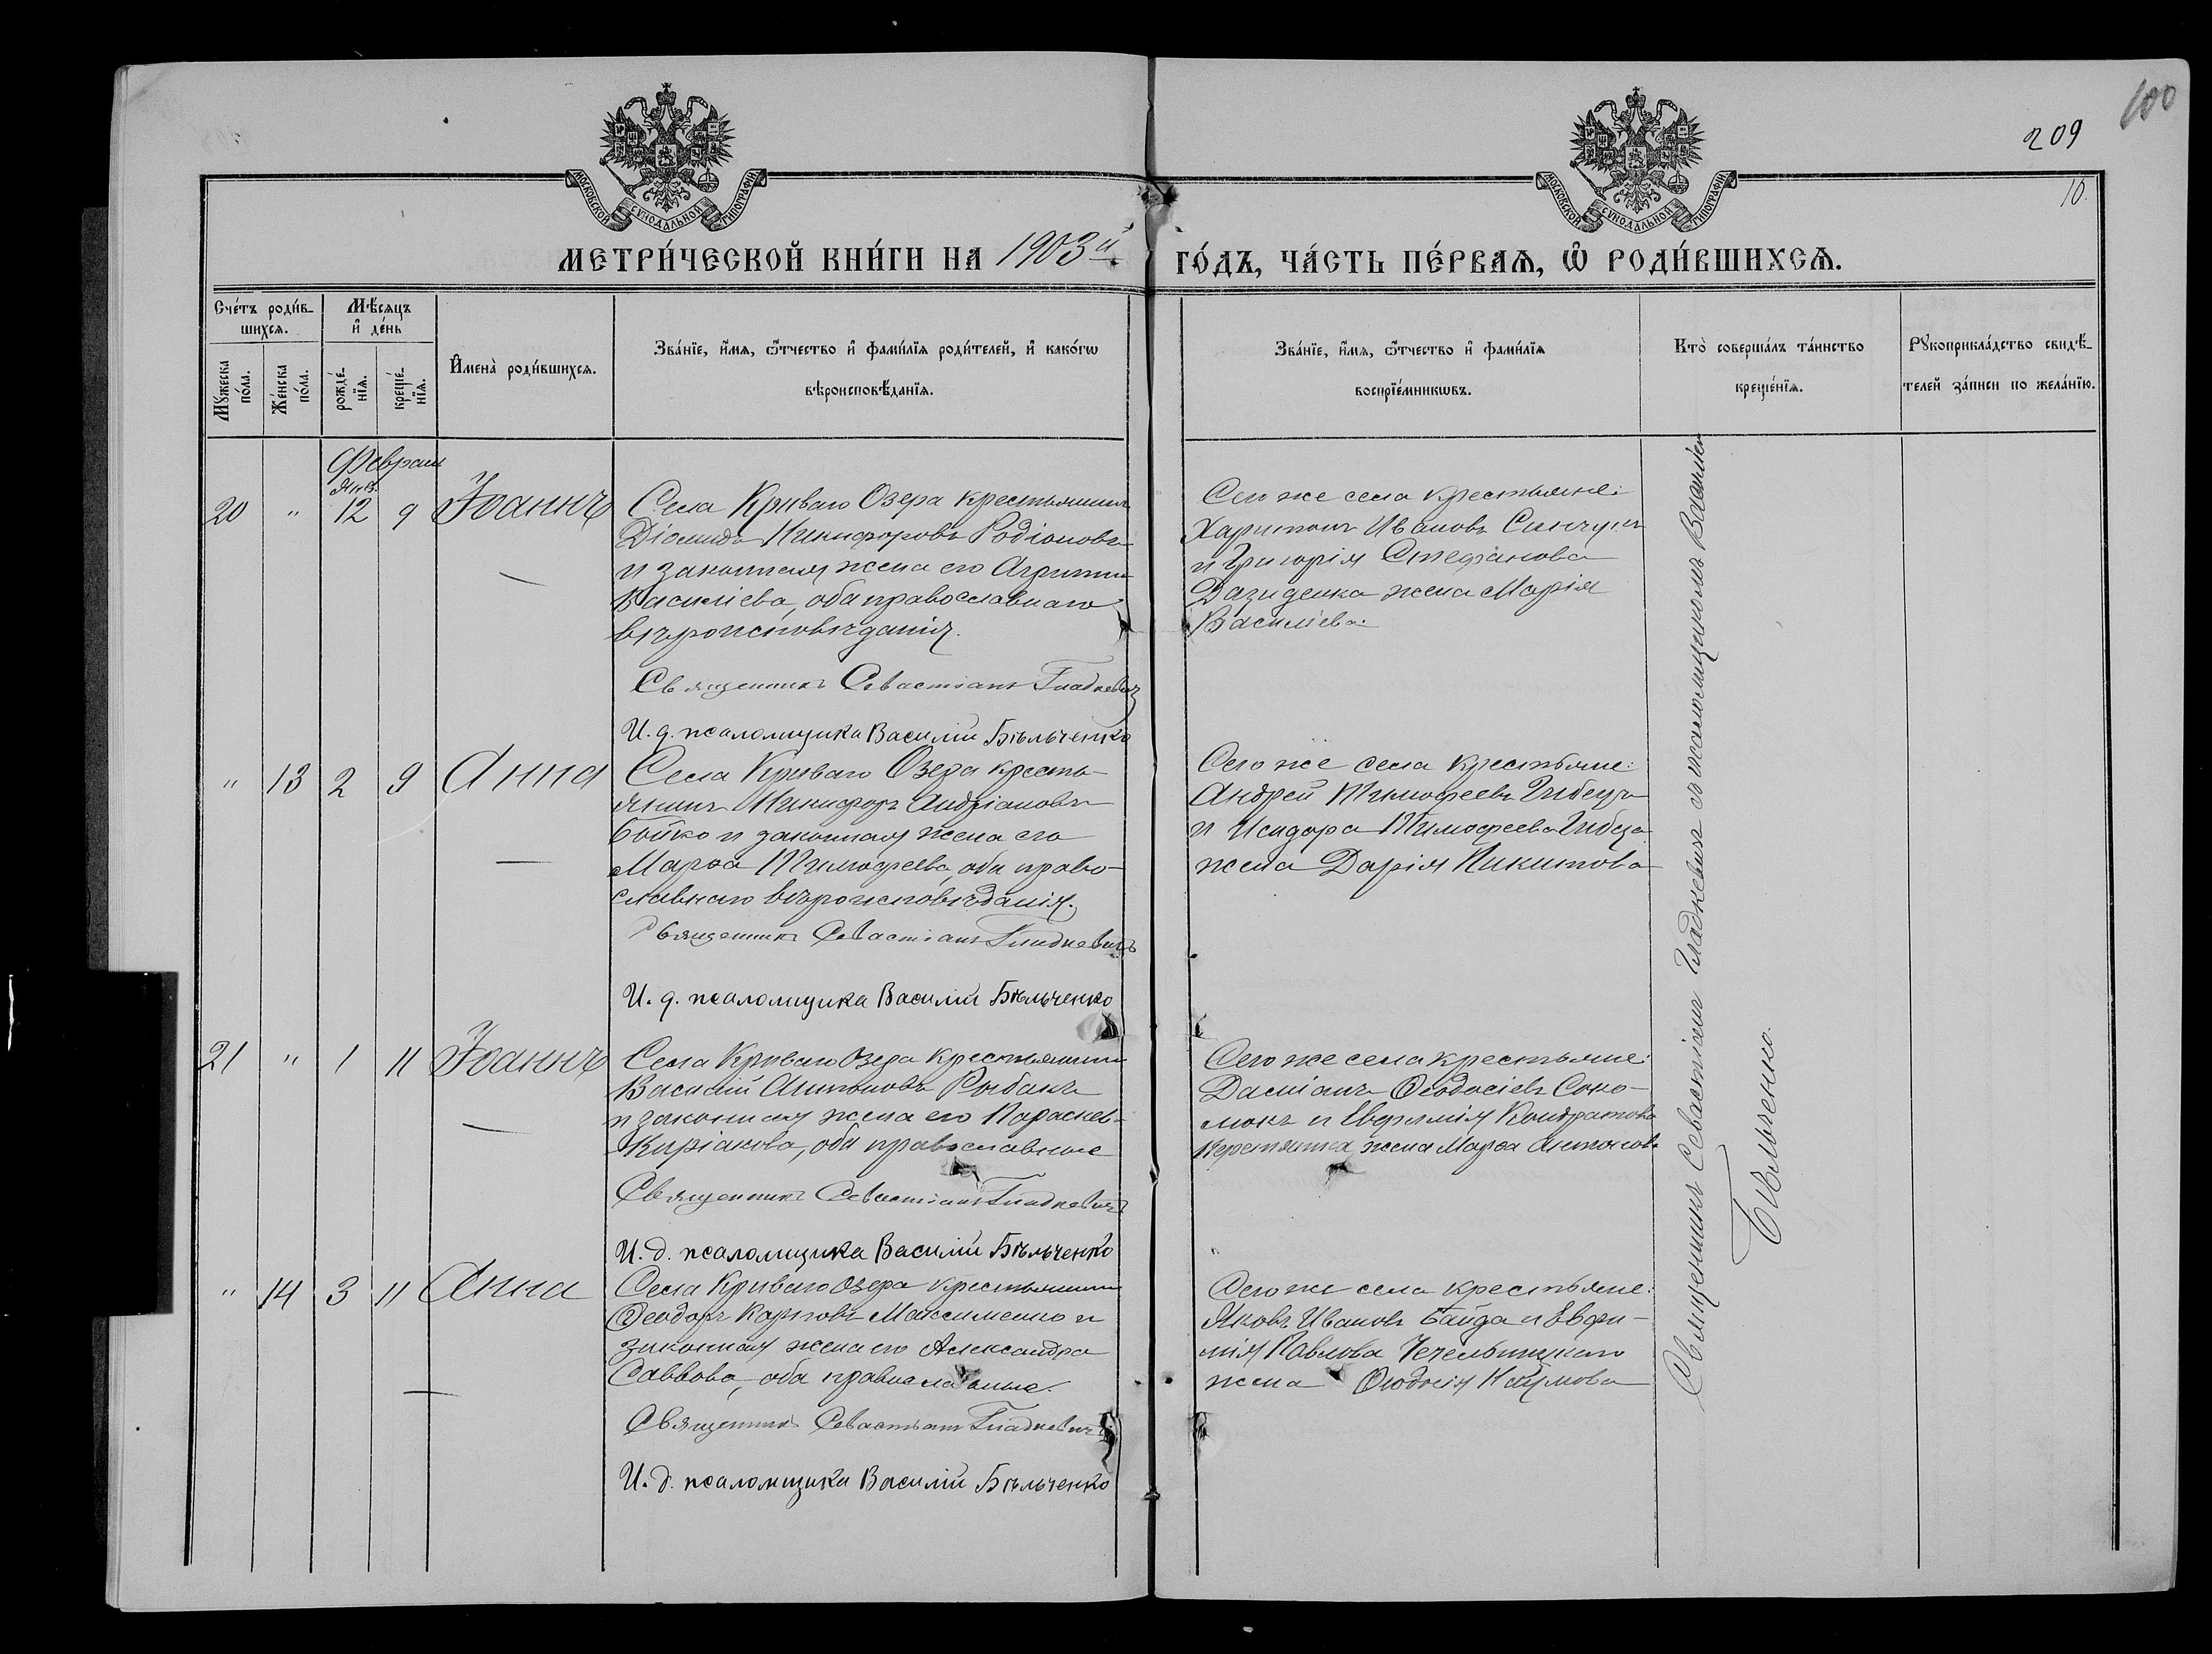 100
209
10.
МОСКОВСКОЙ СѴНОДАЛЬНОЙ ТИПОГРАФІИ
МОСКОВСКОЙ СѴНОДАЛЬНОЙ ТИПОГРАФІИ
МЕТРИ́ЧЕСКОЙ КНИ́ГИ НА 1903й ГО́ДЪ, ЧА́СТЬ ПЕ́РВАѦ, Ѽ РОДИ́ВШИХСѦ.
Сче́тъ роди́в-
шихсѧ.
Мѣ́сѧцъ
и҆ де́нь
Мꙋ́жеска
по́ла.
Же́нска
по́ла.
рожде́-
нїѧ.
креще́-
нїѧ.
И҆мена̀ роди́вшихсѧ.
Зва́нїе, и҆́мѧ, ѻ҆́тчество и҆ фами́лїѧ роди́телей, и҆ како́гѡ
вѣроисповѣ́данїѧ.
Зва́нїе, и҆́мѧ, ѻ҆́тчество и҆ фами́лїѧ
воспрїе́мникѡвъ.
Кто̀ соверша́лъ та́инство
креще́нїѧ.
Рꙋкоприкла́дство свидѣ́-
телей за́писи по жела́нїю.
Февраля
Янв.
20 " 12 9 Іоаннъ
Села Криваго Озера крестьянинъ
Діомидъ Никифоровъ Родіоновъ
и законная жена его Агрипина
Василіева, оба православнаго
вѣроисповѣданія.
Священникъ Севастіанъ Гладкевичъ
И. д. псаломщика Василій Бѣльченко
Сего же села крестьяне:
Харитонъ Ивановъ
и Григорія Стефанова
жена Марія
Василіева.
" 13 2 9 Анна
Села Криваго Озера кресть-
янинъ Никифоръ Андріановъ
Бойко и законная жена его
Марѳа Тимофеева, оба право-
славнаго вѣроисповѣданія.
Священникъ Севастіанъ Гладкевичъ
И. д. псаломщика Василій Бѣльченко
Сего же села крестьяне:
Андрей Тимофеевъ
и Исидора Тимофеева
жена Дарія Никитова
21 " 1 11 Іоаннъ
Села Криваго Озера крестьянинъ
Василій Антоновъ Рыбакъ
и законная жена его Параскев-
Киріакова, оба православные
Священникъ Севастіанъ Гладкевичъ
И. д. псаломщика Василій Бѣльченко
Сего же села крестьяне:
Даміанъ Ѳеодосіевъ
и Евфимія Кондратова
жена Марѳа Антонова
" 14 3 11 Анна
Села Криваго Озера крестьянинъ
Ѳеодоръ Карповъ Максименко и
законная жена его Александра
Саввова, оба православные.
Священникъ Севастіанъ Гладкевичъ
И. д. псаломщика Василій Бѣльченко
Сего же села крестьяне:
Яковъ Ивановъ Байда и Евфи-
мія Павлова Чечельницкаго
жена Ѳеодосія Наумова
Священникъ Севастіанъ Гладкевичъ съ псаломщикомъ Василіемъ
Бѣльченко.